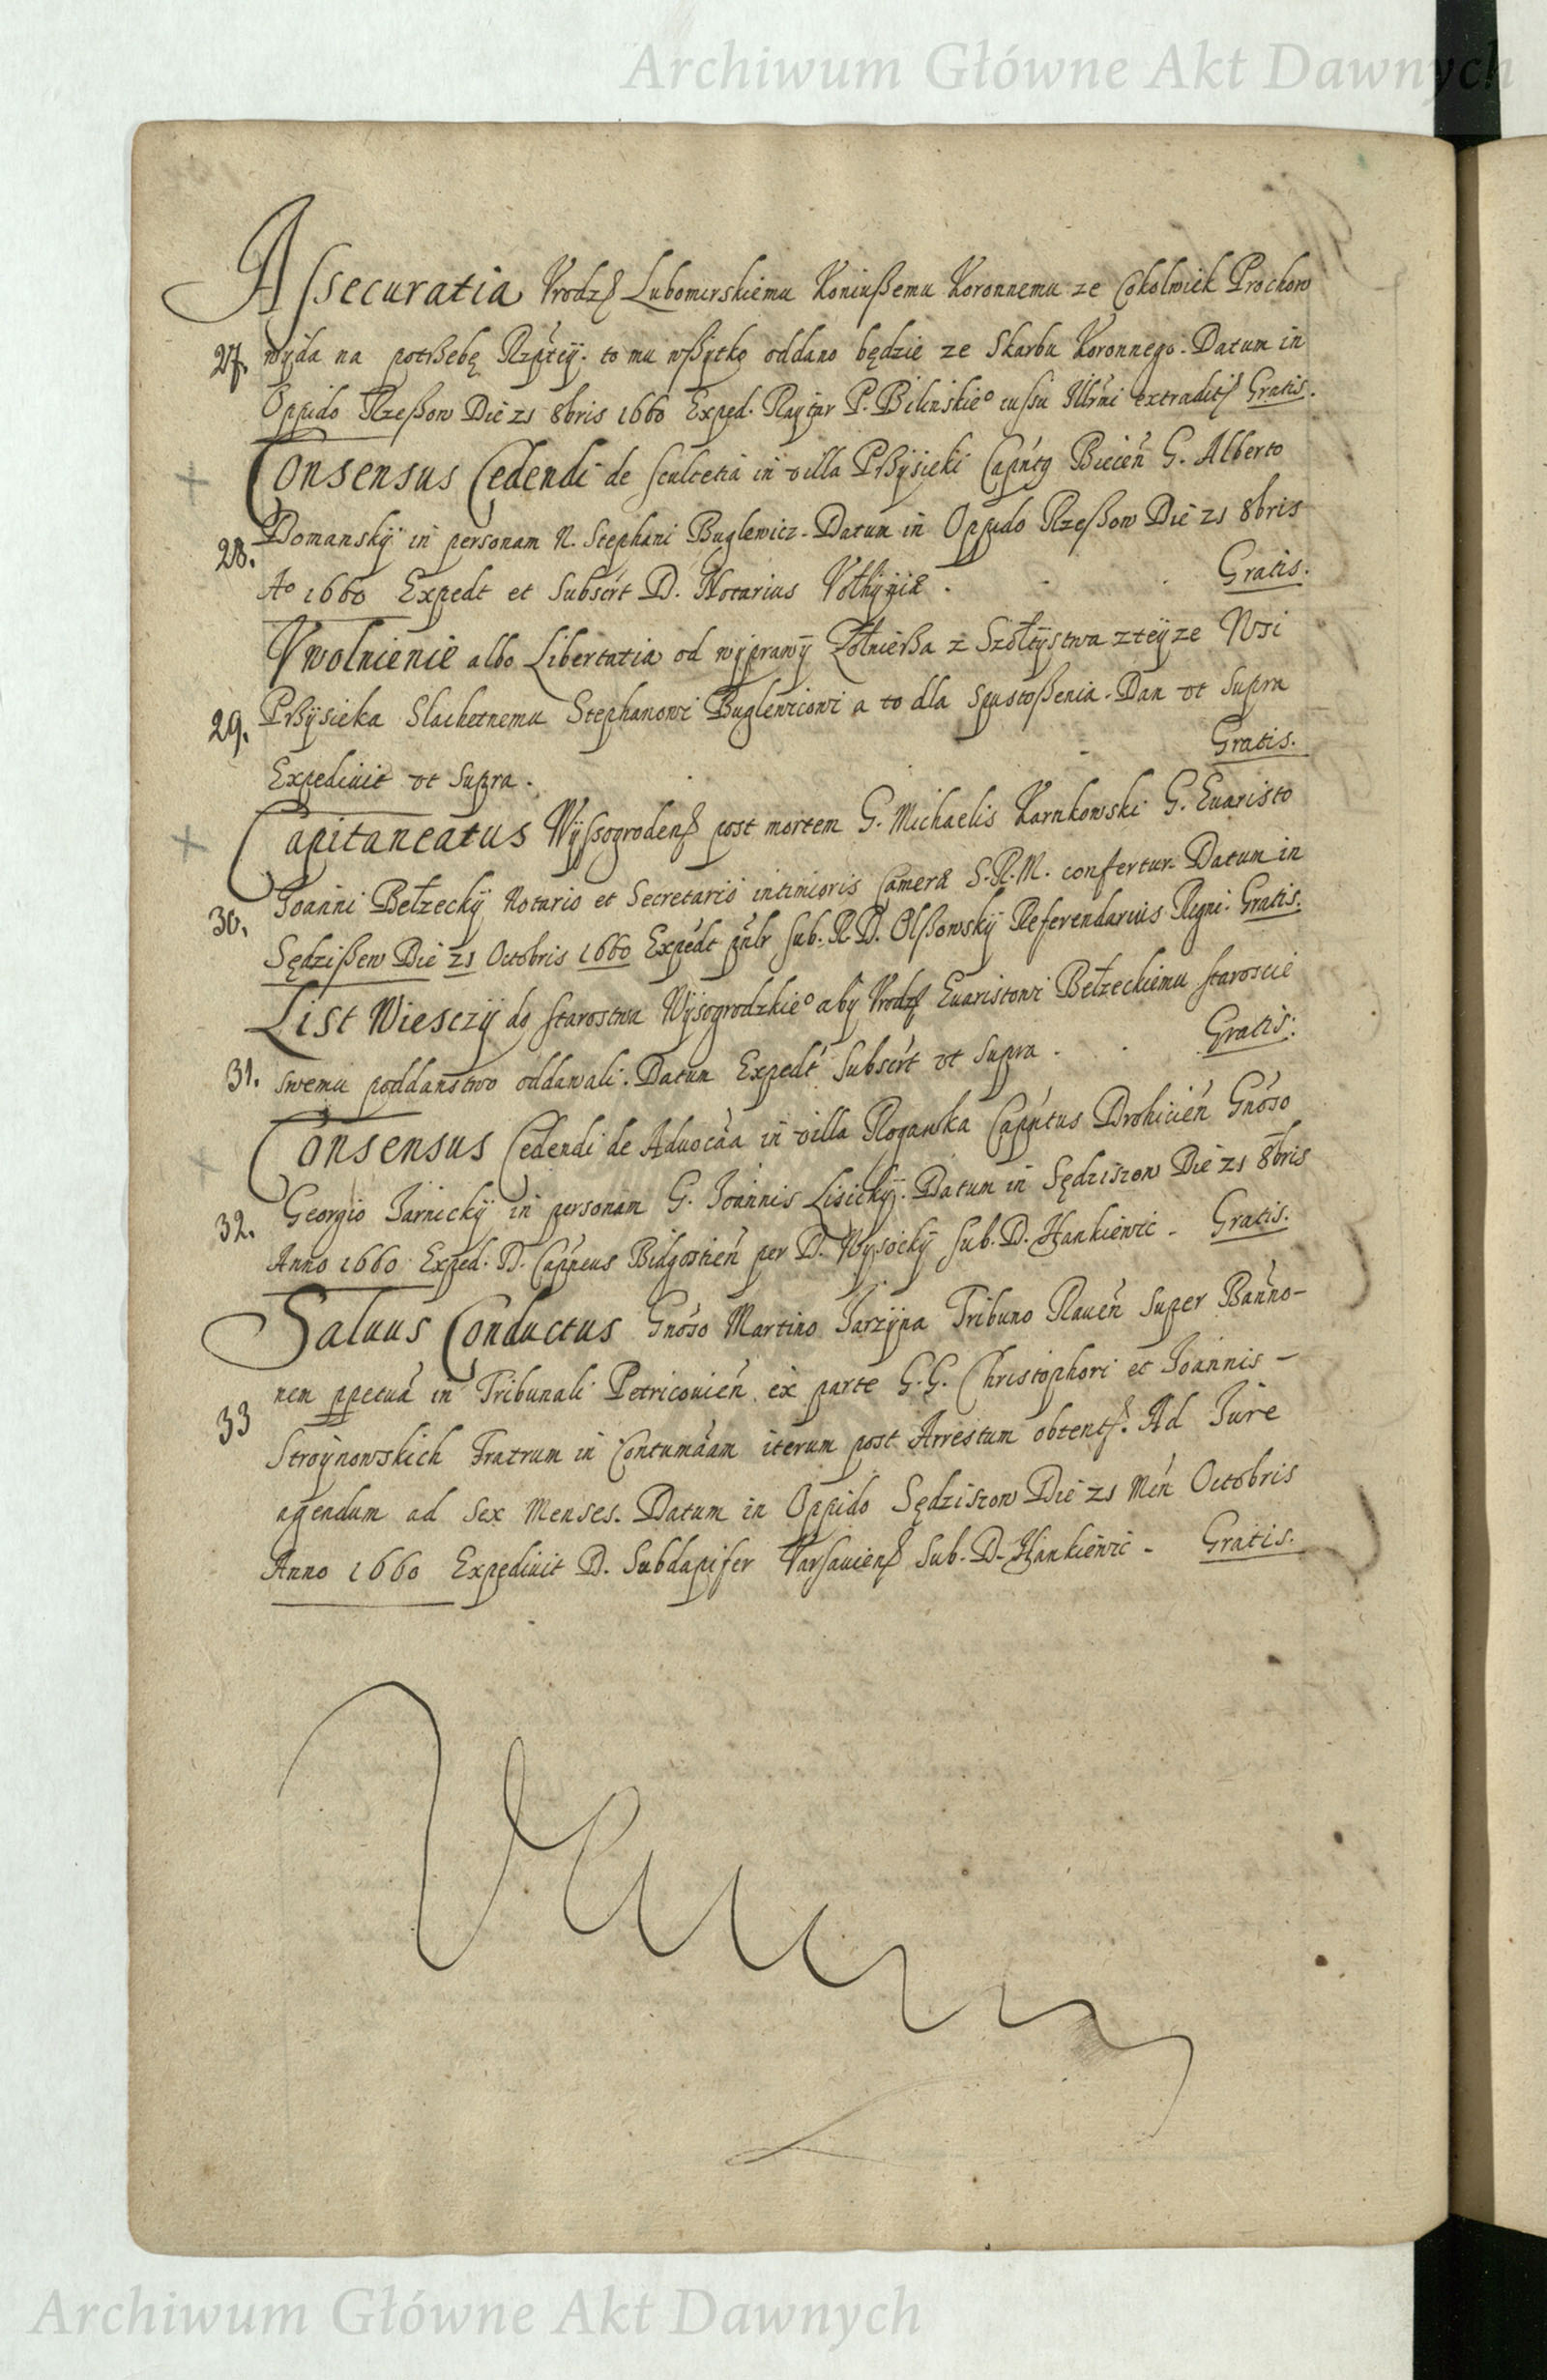 Archiwum Główne Akt Dawnych
Assecuratia Vrodzo Lubomirskiemu Koniußemu Koronnemu ze Cokolwiek Prochow
27. wyda na potrßebę Rzptey. to mu wßytko oddano będzie ze Skarbu Koronnego. Datum in
Oppido Rzeßow Die 21 8bris 1660 Exped. Raytar P. Bilinskieo iussu Illmi extradit Gratis.
Consensus Cedendi de scultetia in villa Prßysieki Capntg Biecen G. Alberto
28. Domansky in personam N. Stephani Buglewicz. Datum in Oppido Rzeßow Die 21 8bris
Ao 1660 Expedt et Subscrt D. Notarius Volhyniæ . Gratis.
Vwolnienie albo Libertatia od wyprawy Żołnierßa z Szołtystwa zteyze Wsi
29. Prßysieka Slachetnemu Stephanowi Buglewicowi a to dla spustoßenia. Dan vt Supra
Expediuit vt Supra. Gratis.
Capitaneatus Wyssogrodens post mortem G. Michaelis Karnkowski G. Euaristo
30. Joanni Bełzecky Notario et Secretario intimioris Cameræ S.R.M. confertur. Datum in
Sędzißew Die 21 Octobris 1660 Expedt pnlr sub. R.D. Olßowsky Referendarius Regni. Gratis.
List Wiesczy do starostwa Wysogrodzkieo aby Vrodz Euaristowi Bełzeckiemu staroscie
31. swemu poddanstwo oddawali. Datum Expedt Subscrt vt Supra . Gratis.
Consensus Cedendi de Aduocaa in villa Rogawka Capntus Drohicien Gnoso
32. Georgio Jarnicky in personam G. Joannis Lisicky. Datum in Sędziszow Die 21 8bris
Anno 1660 Exped. D. Capneus Bidgostien per D. Wysocky sub. D. Hankiewic - Gratis.
Saluus Conductus Gnoso Martino Jarzyna Tribuno Rauen super Banno-
nem ppetua in Tribunali Petricouien ex parte G.G. Christophori et Joannis -
33 Stroynowskich Fratrum in Contumaam iterum post Arrestum obtent. Ad Iure
agendum ad sex Menses. Datum in Oppido Sędziszow Die 21 Men Octobris
Anno 1660 Expediuit D. Subdapifer Varsauiens sub. D. Hankiewic - Gratis.
Archiwum Główne Akt Dawnych